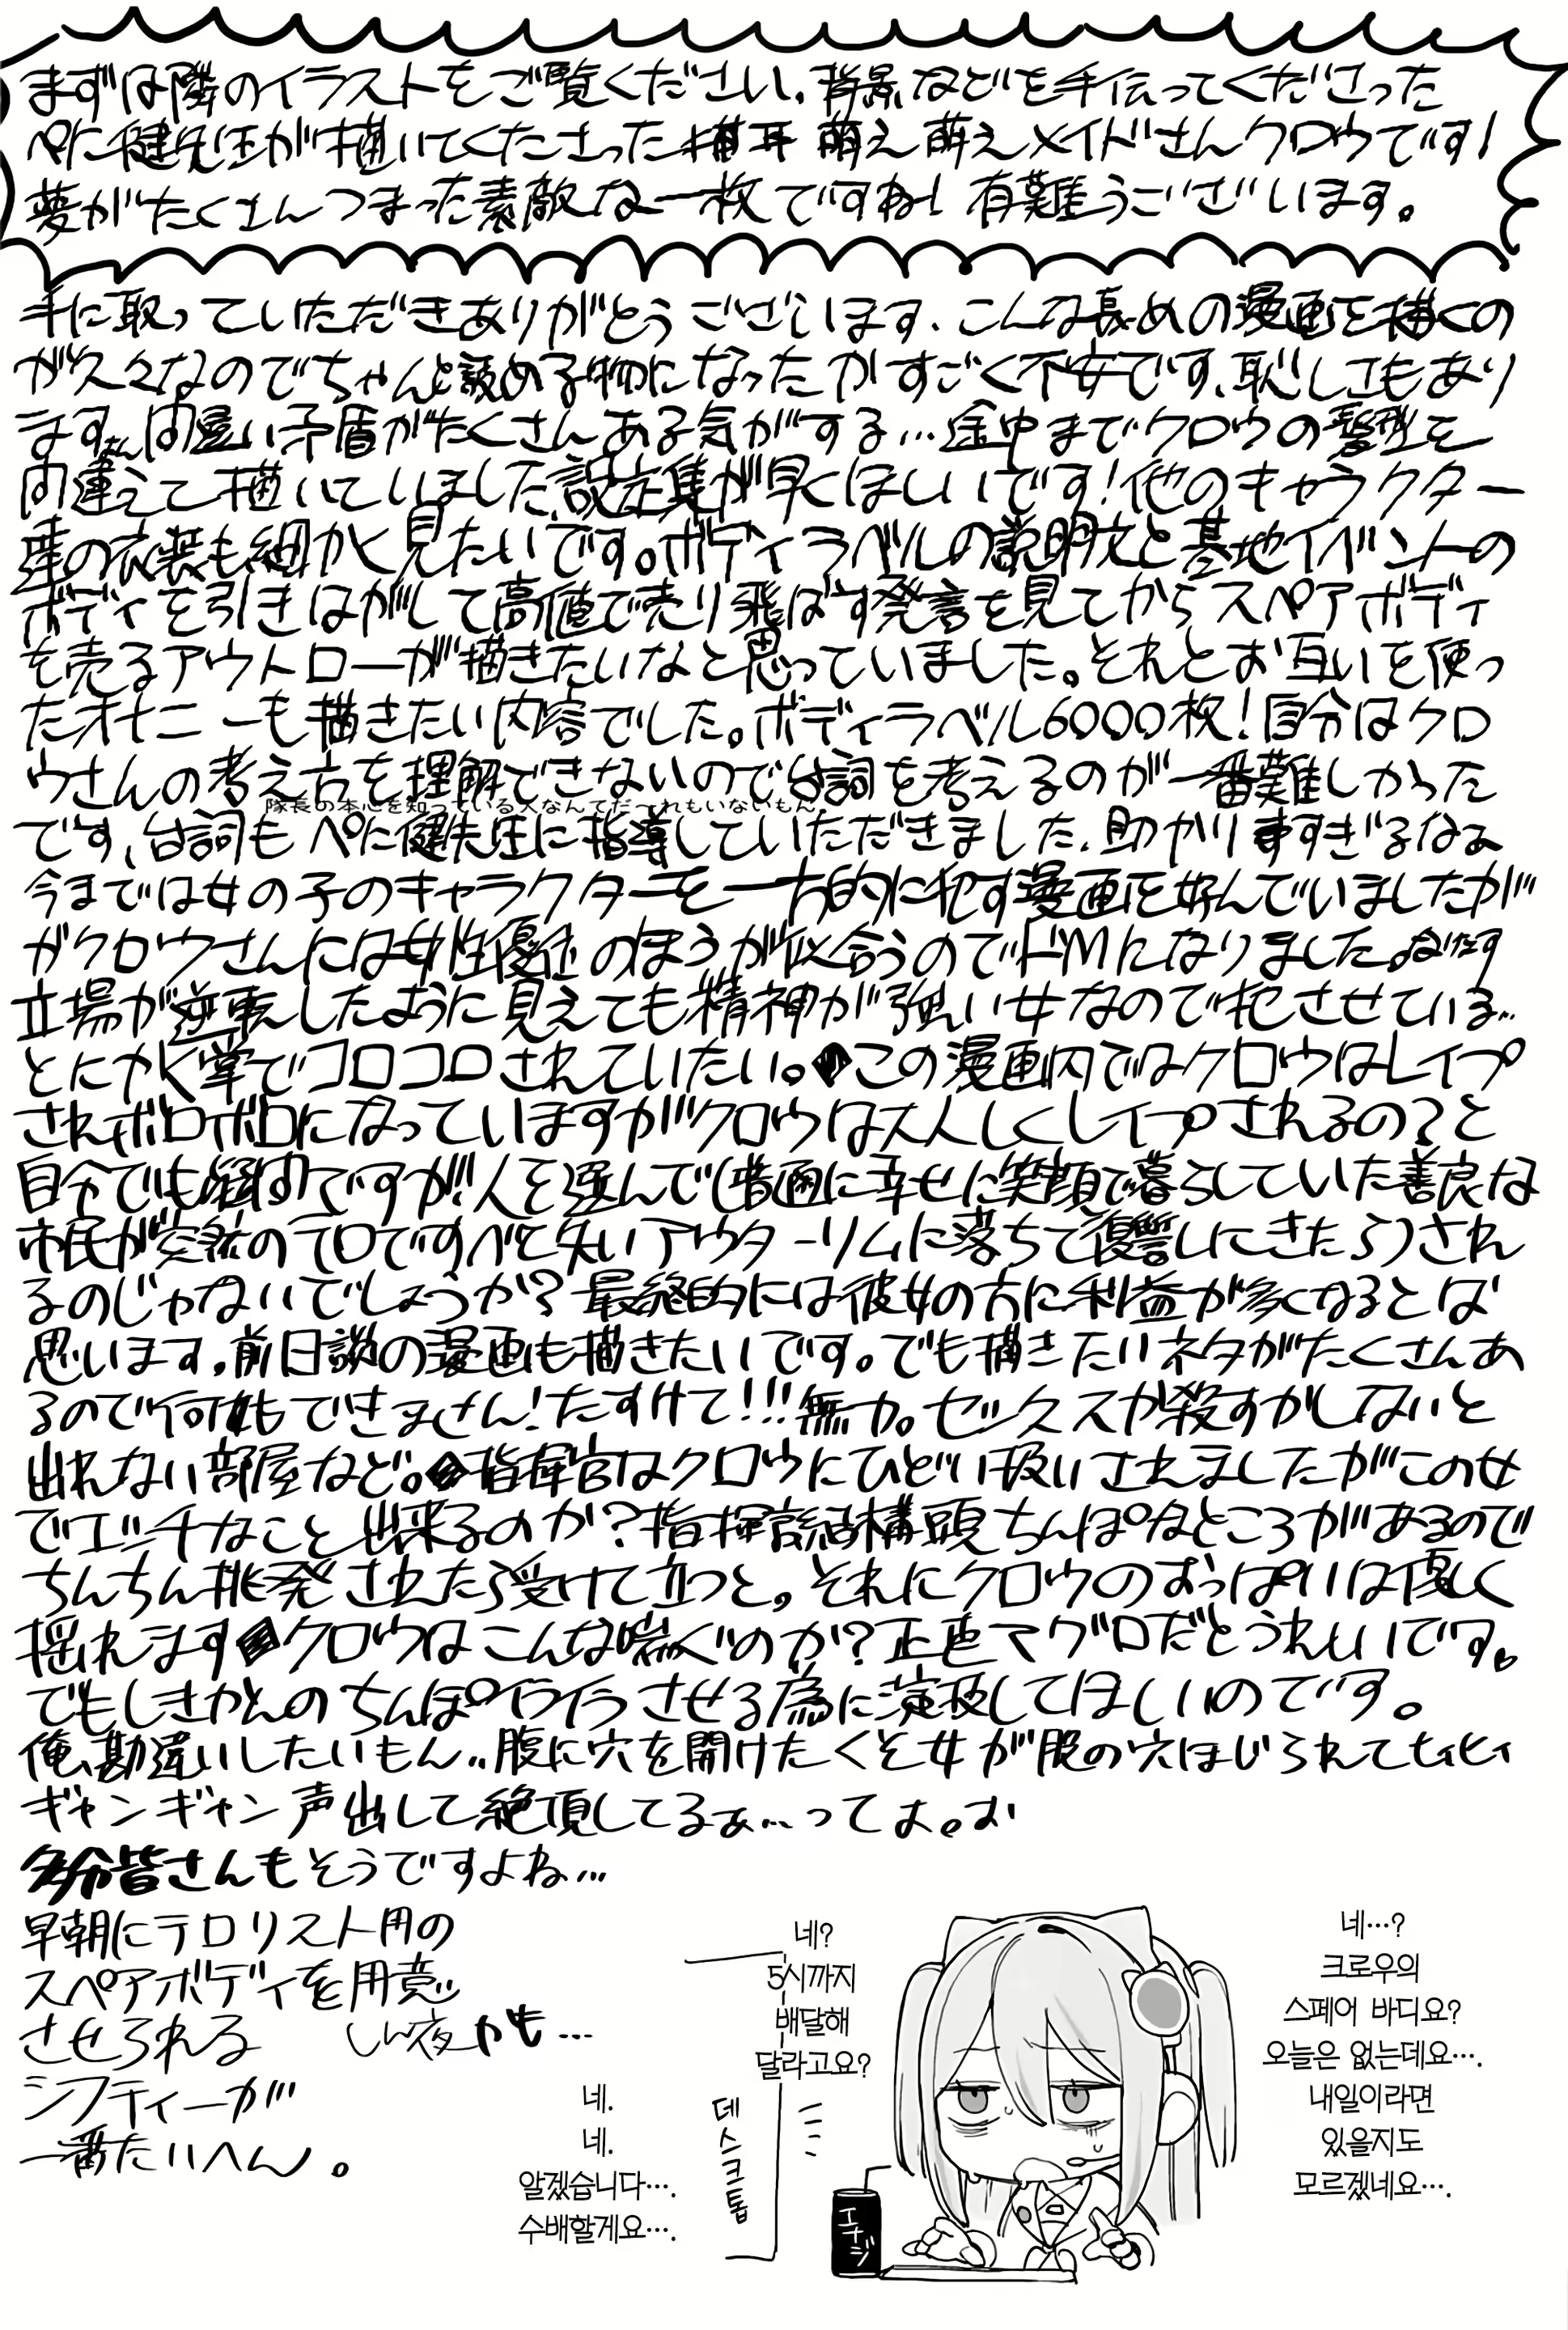 まずは隣のイラストをご覧ください、背景などを手伝ってくださった
ぺに健先生が描いてくださった猫耳萌え萌えメイドさんクロウです!
夢がたくさんつまった素敵な一枚ですね! 有難うございます。
手に取っていただきありがとうございます、こんな長めの漫画を描くの
が久々なのでちゃんと読める物になったかすごく不安です、恥しさもあり
ます、間違い矛盾がたくさんある気がする…途中までクロウの髪型を
間違えて描いていました、設定集が早くほしいです!他のキャラクター
達の衣装も細かく見たいです。ボディラベルの説明文と基地イベントの
ボディを引きはがして高値で売り飛ばす発言を見てからスペアボディ
を売るアウトローが描きたいなと思っていました。それとお互いを使っ
たオナニーも描きたい内容でした。ボディラベル6000枚!自分はクロ
ウさんの考え方を理解できないので台詞を考えるのが一番難しかった
隊長の本心を知っている人なんてだ〜れもいないもん
です、台詞もぺに健先生に指導していただきました、助かりますすぎるなぁ
今までは女の子のキャラクターを一方的に犯す漫画を好んでいましたが
がクロウさんには女性優位のほうが似合うのでドMになりました。
立場が逆転したように見えても精神が強い女なので犯させている…
とにかく掌でコロコロされていたい。この漫画内ではクロウはレイプ
されボロボロになっていますがクロウは大人しくレイプされるの?と
自分でも疑問ですが!!人を選んで(普通に幸せに笑顔で暮らしていた善良な
市民が突然のテロですべてを失いアウターリムに落ちて復讐しにきたら)され
るのじゃないでしょうか?最終的には彼女の方に利益が多くなるとは
思います、前日談の漫画も描きたいです。でも描きたいネタがたくさんあ
るので何もできません!たすけて!!!無力。セックスか殺すかしないと
出れない部屋など。指揮官はクロウにひどい扱いされましたがこの女
でエッチなこと出来るのか?指揮官結構頭ちんぽなところがあるので
ちんちん挑発されたら受けて立つと。それにクロウのおっぱいは優しく
揺れますクロウはこんな喘ぐのか?正直マグロだとうれしいです。
でもしきかんのちんぽイライラさせる為に演技してほしいのです。
俺、勘違いしたいもん..腹に穴を開けたくそ女が股の穴ほじられてヒィヒィ
ギャンギャン声出して絶頂してるぁ…ってょ。お
多分皆さんもそうですよね…
早朝にテロリスト用の
スペアボディを用意
させられる しん夜かも…
シフティーが
一番たいへん。
네…?
크로우의
스페어 바디요?
오늘은 없는데요….
내일이라면
있을지도
모르겠네요….
네?
5시까지
배달해
달라고요?
데스크톱
네.
네.
알겠습니다….
수배할게요….
エナジ